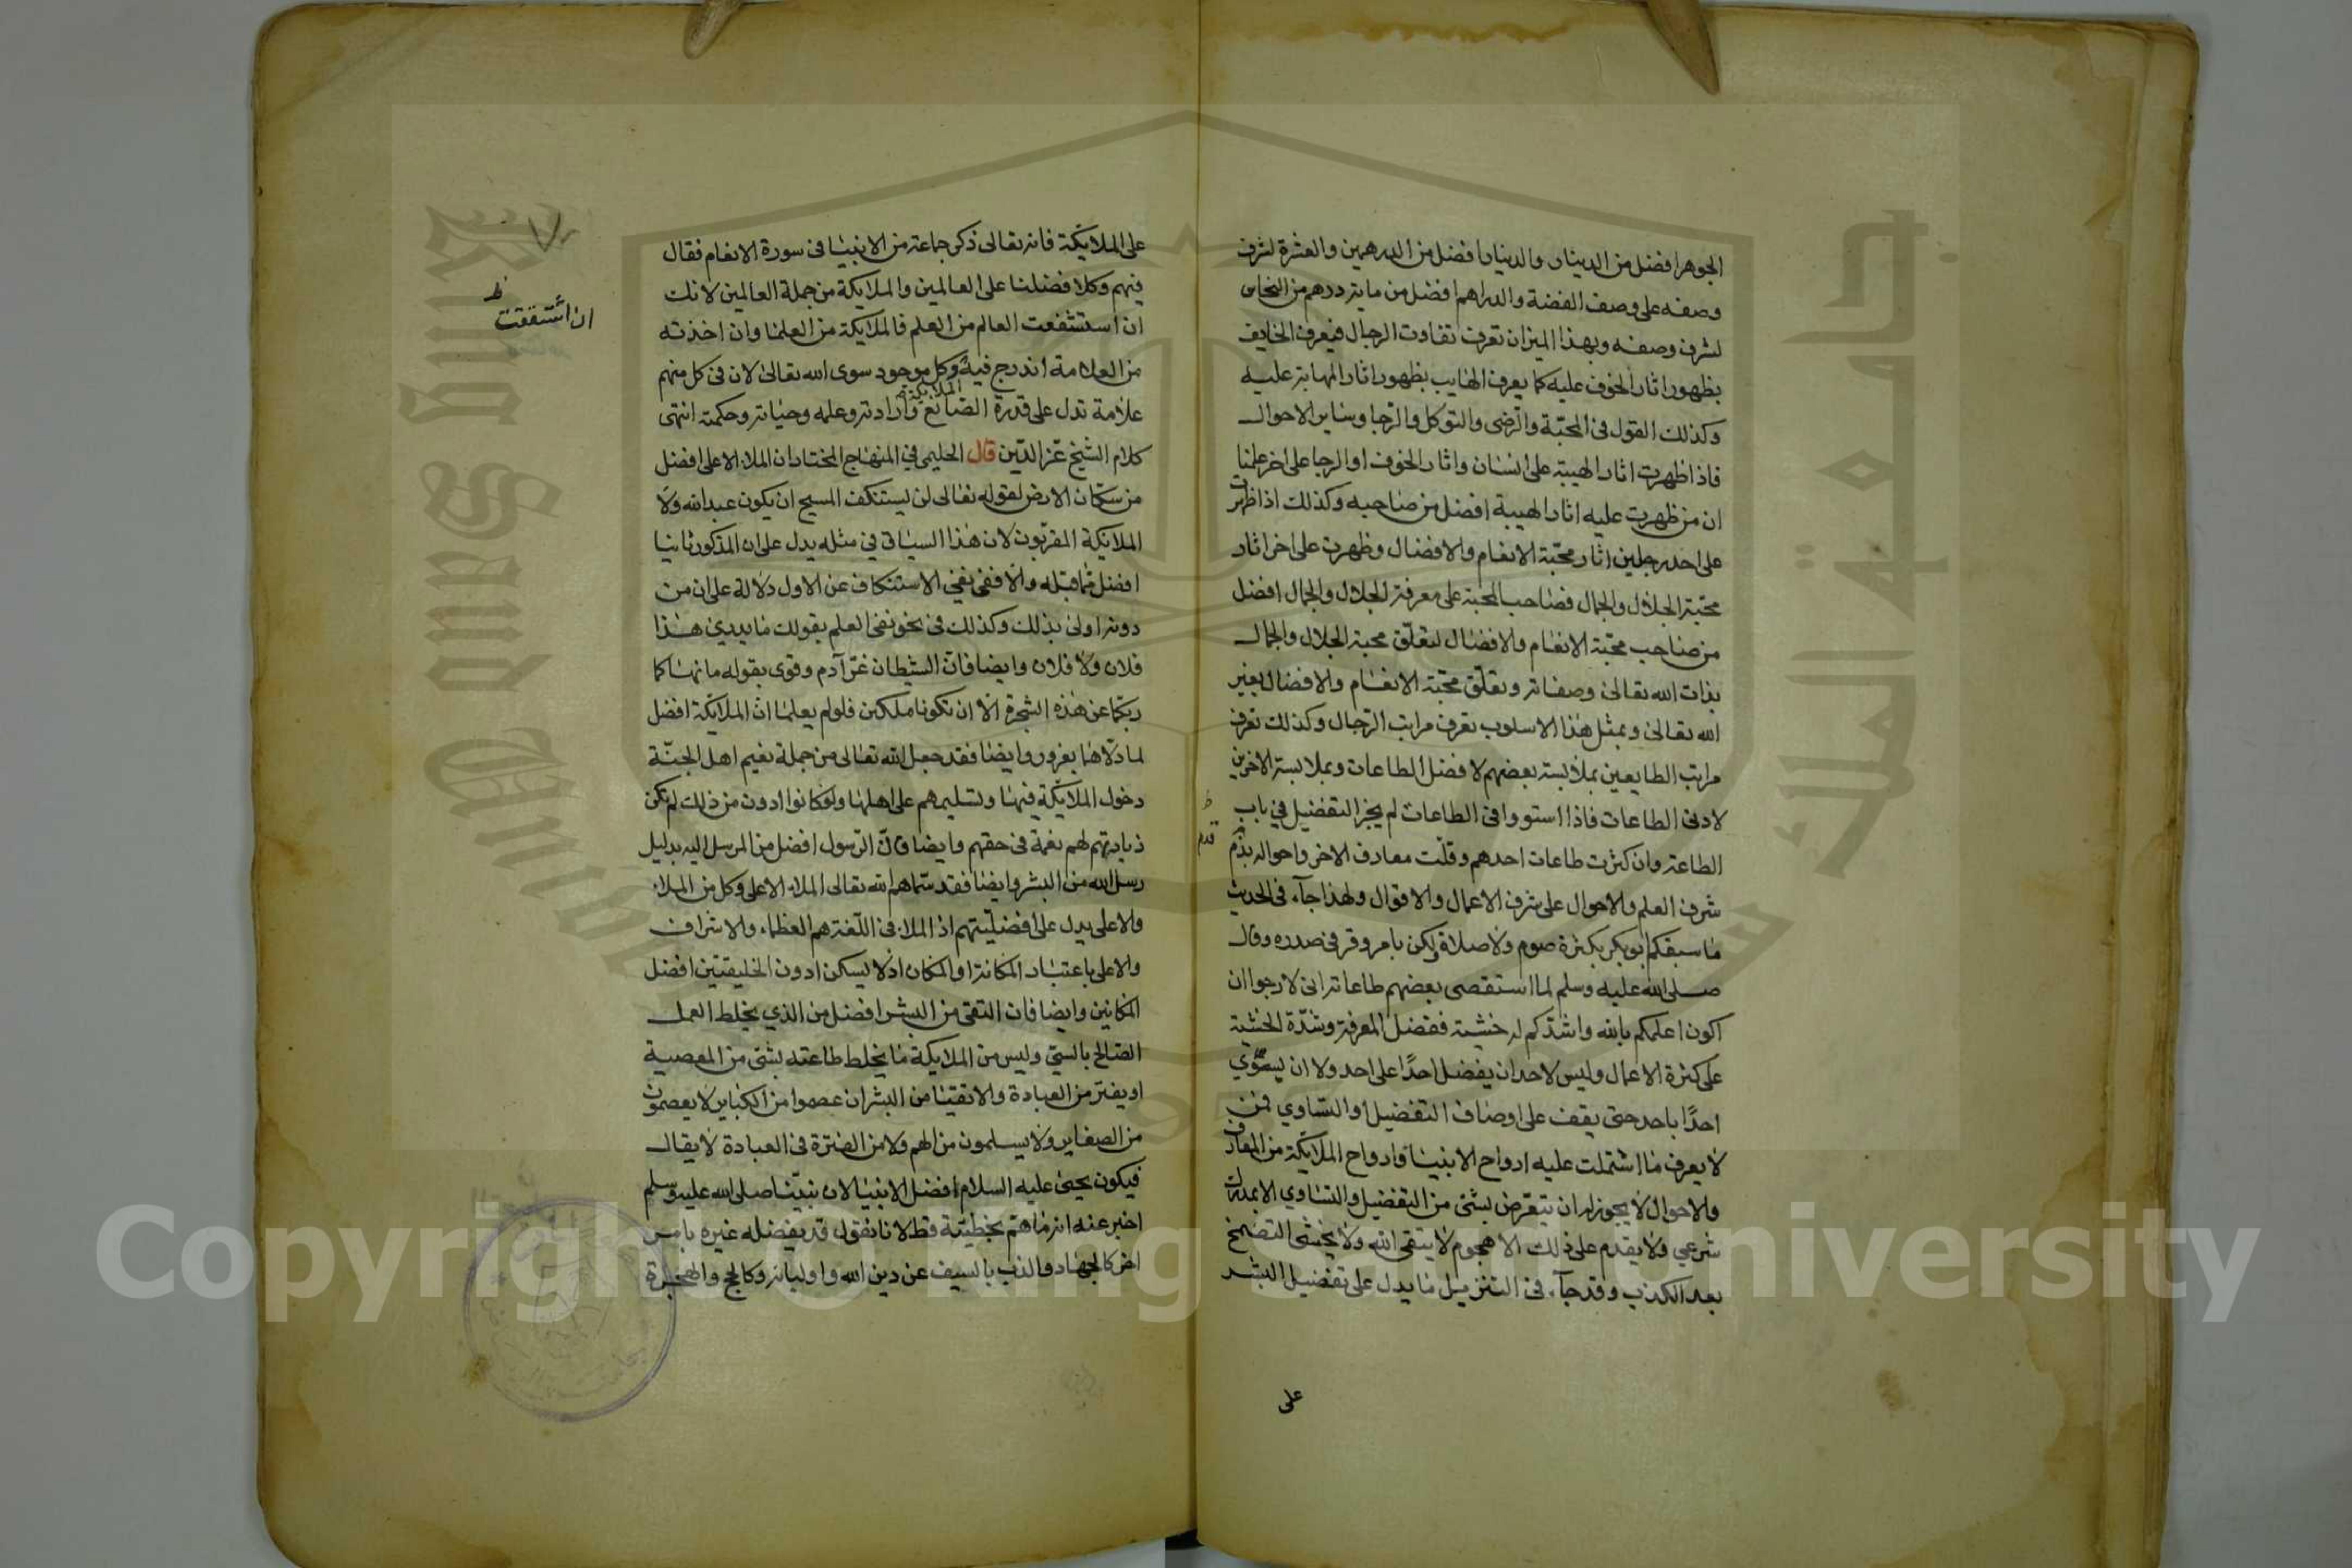 الجوهر افضل من الدينار والدينار افضل من الدرهمين والعشرة لشرف
وصفه على وصف الفضة والدراهم افضل من ما يتردهم من النحاس
لشرف وصفه وبهذا الميزان تعرف تفاوت الرجال فيعرف الخايف
بظهور اثار الخوف عليه كما يعرف الهايب بظهور اثار المهابة عليه
وكذلك القول في المحبّة والرّضى والتوكل والرّجا وساير الاحوال
فاذا ظهرت اثار الهيبة على انسان واثار الخوف او الرجا على اخر علمنا
ان من ظهرت عليه اثار الهيبة افضل من صاحبه وكذلك اذا ظهرت
على احد رجلين اثار محبّة الانعام والافضال وظهرت على اخر اثار
محبّة الجلال والجمال فصاحب المحبة على معرفة الجلال والجمال افضل
من صاحب محبّة الانعام والافضال لتعلّق محبة الجلال والجمال
بذات الله تعالى وصفاته وتعلّق محبّة الانعام والافضال بغير
الله تعالى وبمثل هذا الاسلوب تعرف مراتب الرّجال وكذلك تعرف
مراتب الطايعين بملابسة بعضهم لافضل الطاعات وبملابسة الاخرين
لادنى الطاعات فاذا استووا في الطاعات لم يجز التفضيل في باب
الطاعة وان كثرت طاعات احدهم وقلّت معارف الاخر واحواله بذم
ظ
قدم
شرف العلم والاحوال على شرف الاعمال والاقوال ولهذا جآء في الحديث
ما سبقكم ابو بكر بكثرة صوم ولا صلاة ولكن بامر وقر في صدره وقال
صلى الله عليه وسلم لما استقصى بعضهم طاعاته اني لارجوا ان
اكون اعلمكم بالله واشدّكم له خشية ففضل المعرفة وشدّة الخشية
على كثرة الاعمال وليس لاحد ان يفضل احدًا على احد ولا ان يسوّي
احدًا باحد حتى يقف على اوصاف التفضيل او التساوي فمن
لا يعرف ما اشتملت عليه ارواح الانبيا وارواح الملايكة من المعارف
والاحوال لا يجوز له ان يتعرّض بشئ من التفضيل والتساوي الا بمدرك
شرعي ولا يقدم على ذلك الا هجوم لا يتقى الله ولا يخشى التضمخ
بعد الكذب وقد جآء في التنزيل ما يدل على تفضيل البشر
على
على الملايكة فانه تعالى ذكر جماعة من الانبيا في سورة الانعام فقال
فيهم وكلا فضلنا على العالمين والملايكة من جملة العالمين لانك
ان استشفعت العالم من العلم فالملايكة من العلما وان اخذته
ظ
ان اشتققت
من العلامة اندرج فيه وكل موجود سوى الله تعالى لان في كل منهم
الملايكة
علامة تدل على قدرة الصانع وارادته وعلمه وحياته وحكمته انتهى
كلام الشيخ عزّ الدّين قال الحليمي في المنهاج المختار ان الملاء الاعلى افضل
من سكّان الارض لقوله تعالى لن يستنكف المسيح ان يكون عبد الله ولا
الملايكة المقرّبون لان هذا السياق في مثله يدل على ان المذكور ثانيا
افضل مما قبله والا ففي نفي الاستنكاف عن الاول دلالة على ان من
دونه اولى بذلك وكذلك في نحو نفي العلم بقولك ما يدري هذا
فلان ولا فلان وايضا فان الشيطان غرّ آدم وقوى بقوله ما نهاكما
ربّكما عن هذه الشجرة الّا ان تكونا ملكين فلو لم يعلما انّ الملايكة افضل
لما دلّاهما بغرور وايضا فقد جعل الله تعالى من جملة نعيم اهل الجنّة
دخول الملايكة فيها وتسليمهم على اهلها ولو كانوا ادون من ذلك لم تكن
زيارتهم لهم نعمة في حقهم وايضا فانّ الرسول افضل من المرسل اليه بدليل
رسل الله من البشر وايضا فقد سمّاهم الله تعالى الملاء الاعلى وكل من الملاء
والاعلى يدل على افضليّتهم اذ الملاء في اللّغة هم العظماء والاشراف
والاعلى باعتبار المكانة او المكان اذ لا يسكن ادون الخليقتين افضل
المكانين وايضا فان التقى من البشر افضل من الذي يخلط العمل
الصالح بالسيّ وليس من الملايكة ما يخلط طاعته بشئ من المعصية
او يفتر من العبادة والاتقيا من البشر ان عصموا من الكباير لا يعصمون
من الصغاير ولا يسلمون من الهم ولا من الفترة في العبادة لا يقال
فيكون يحيى عليه السلام افضل الانبيا لان نبيّنا صلى الله عليه وسلم
اخبر عنه انه ما همّ بخطيئة قط لانا نقول قد يفضله غيره بامر
اخر كالجهاد والذب بالسيف عن دين الله واوليائه وكالحج والهجرة
Copyright © King Saud University
جامعة الملك سعود
King Saud University